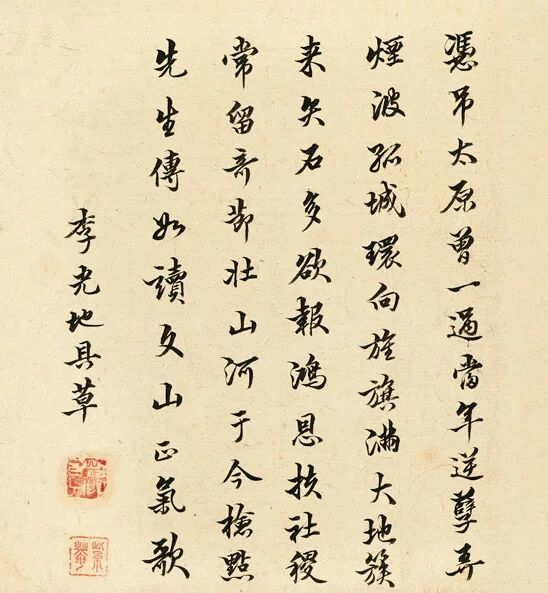 憑弔太原曾一過當年逆孽弄
煙波孤城環向旌旗滿大地簇
来矢石多欲報鴻恩扶社稷
常留奇節壯山河于今檢點
先生傳如讀文山正氣歌
李光地具草